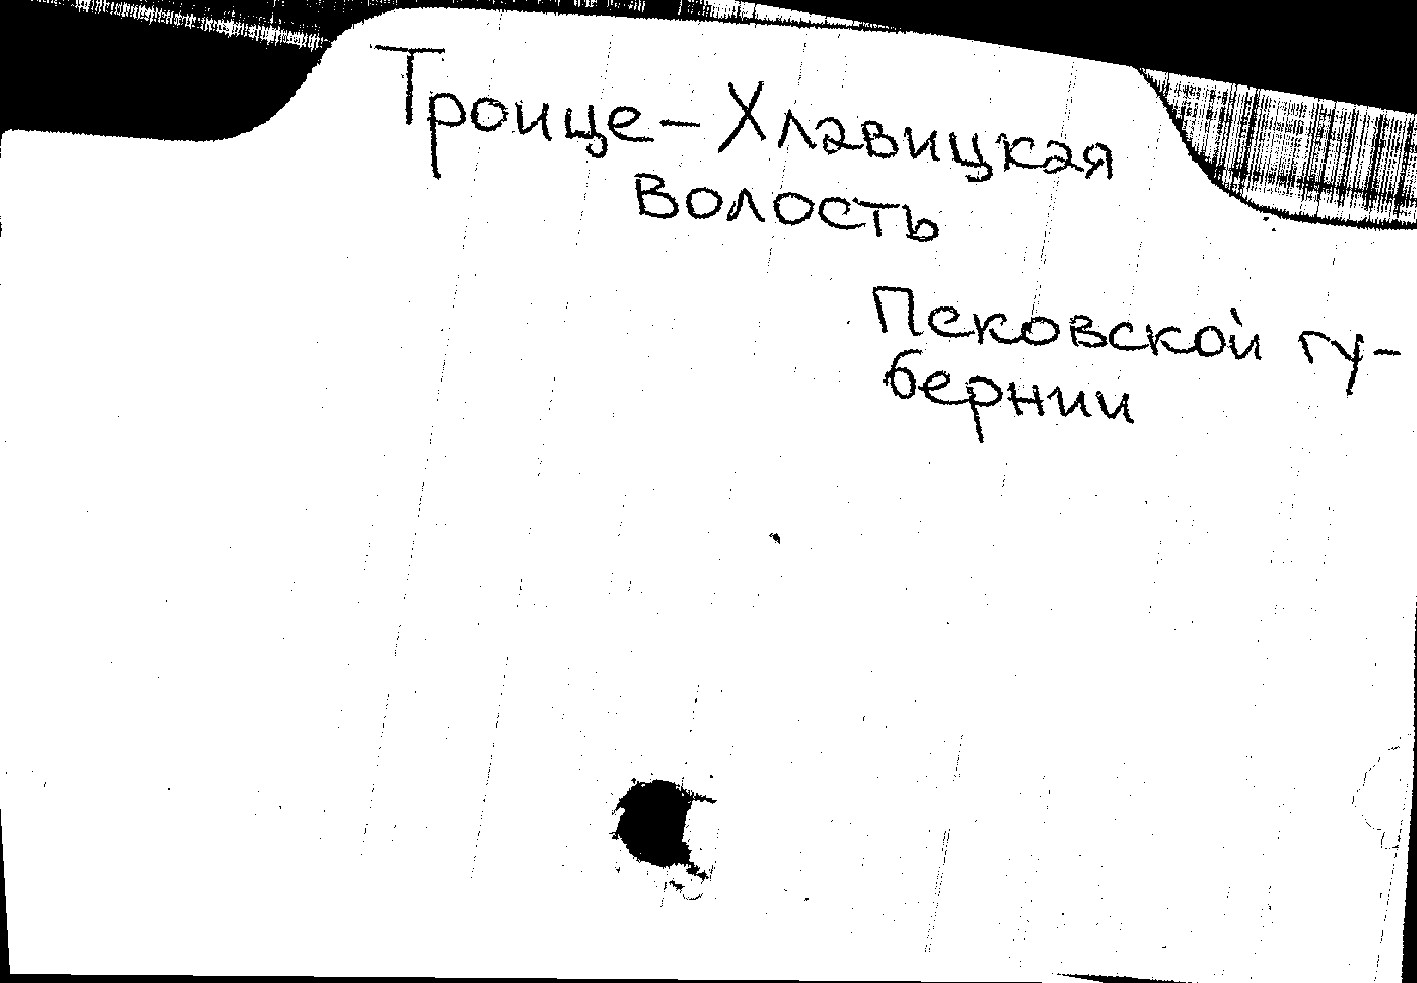 Троице-Хлавицкая
волость
Псковской гу-
бернии